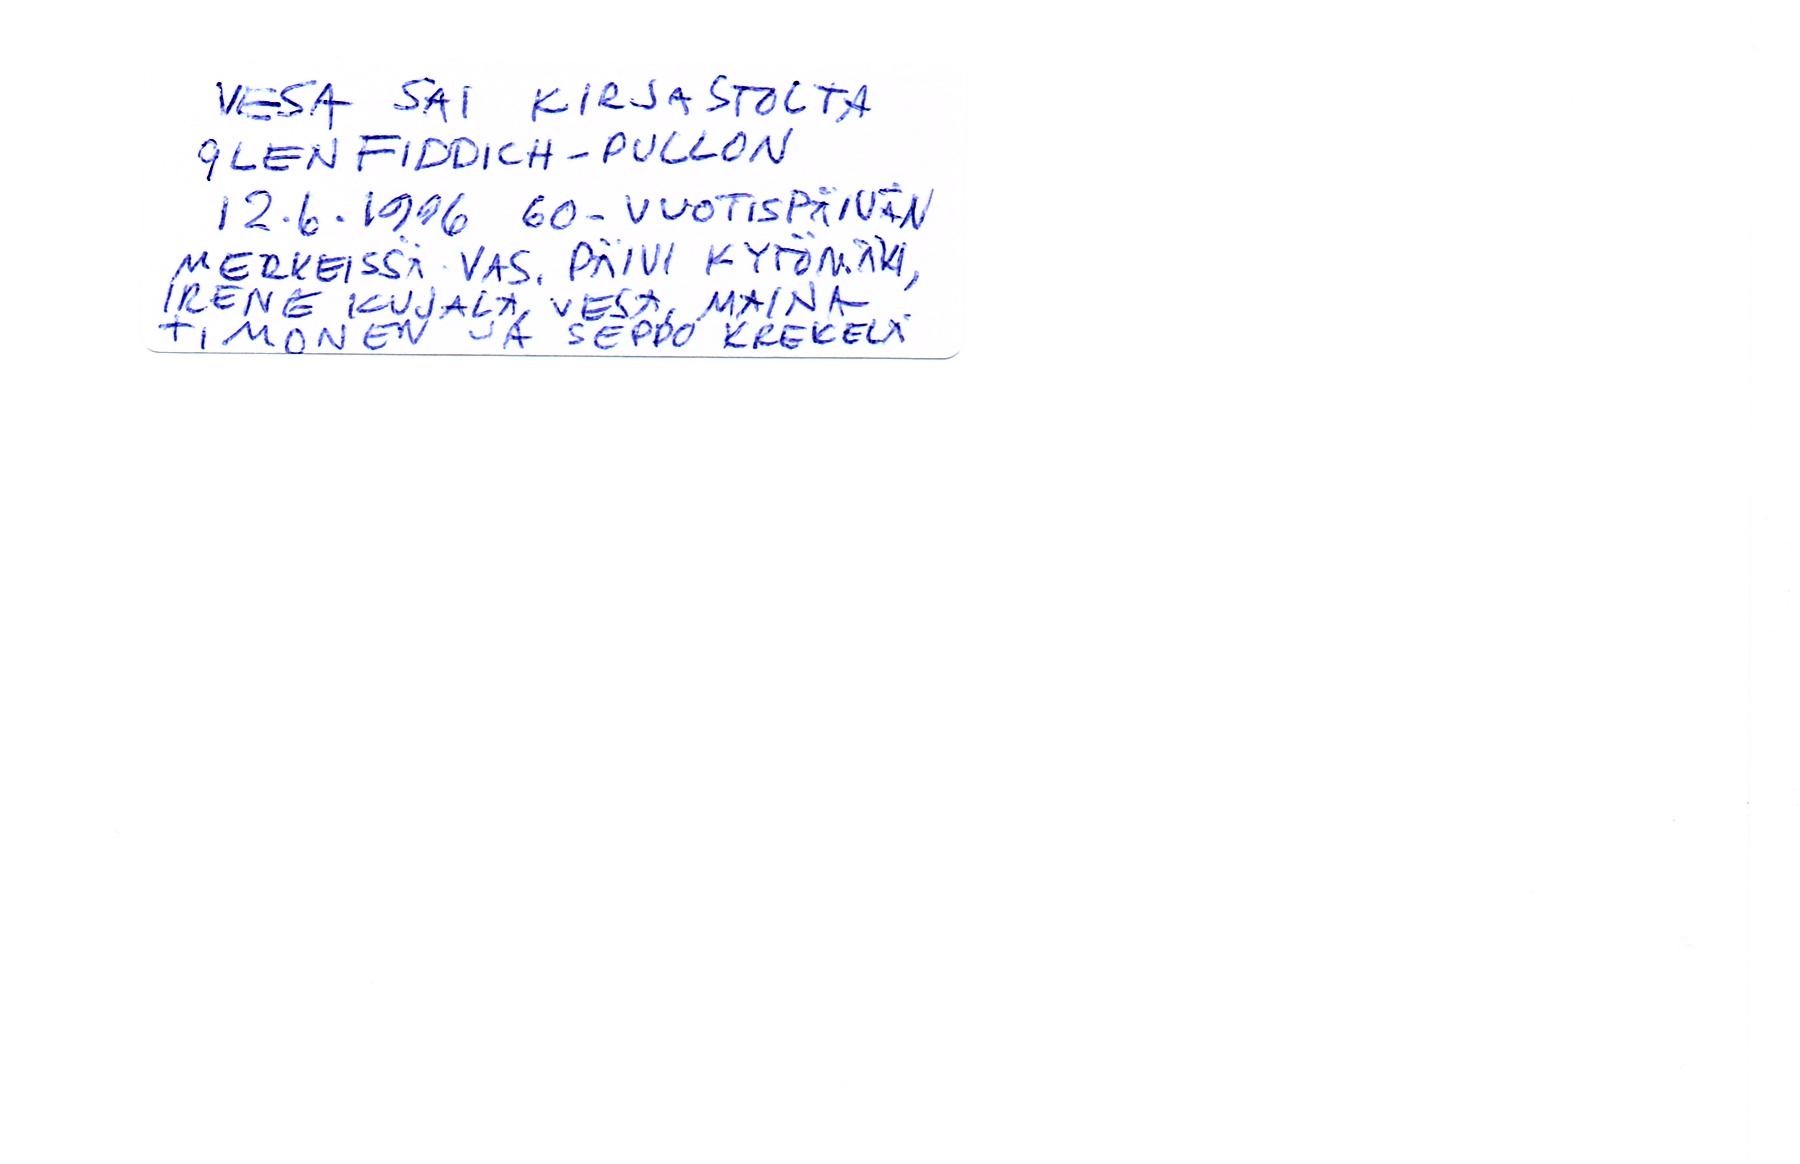 VESA SAI KIRJASTOLTA
GLENFIDDICH-PULLON
12.6.1996 60-VUOTISPÄIVÄN
MERKEISSÄ. VAS. PÄIVI KYTÖMÄKI,
IRENE KUJALA, VESA, MAINA
TIMONEN JA SEPPO KREKELÄ